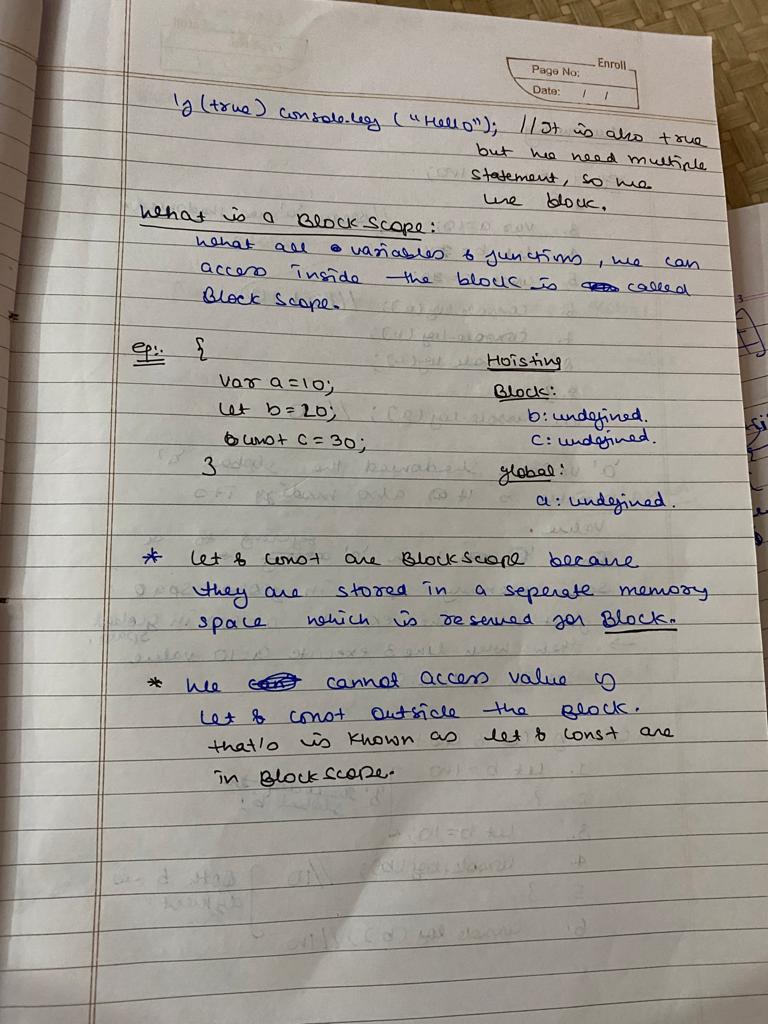 Enroll
Page No:
Date: / /
if (true) console.log ("Hello"); // It is also true
but we need multiple
statement, so we
use block.
What is a Block Scope:
What all variables & functions, we can
access inside the block is called
Block Scope.
eg:- {
var a=10;
let b=20;
const c=30;
}
Hoisting
Block:
b: undefined.
c: undefined.
global:
a: undefined.
* let & const are Block Scope because
they are stored in a seperate memory
space which is reserved for Block.
* We cannot access value of
Let & const outside the Block.
that's is known as let & const are
in Block scope.